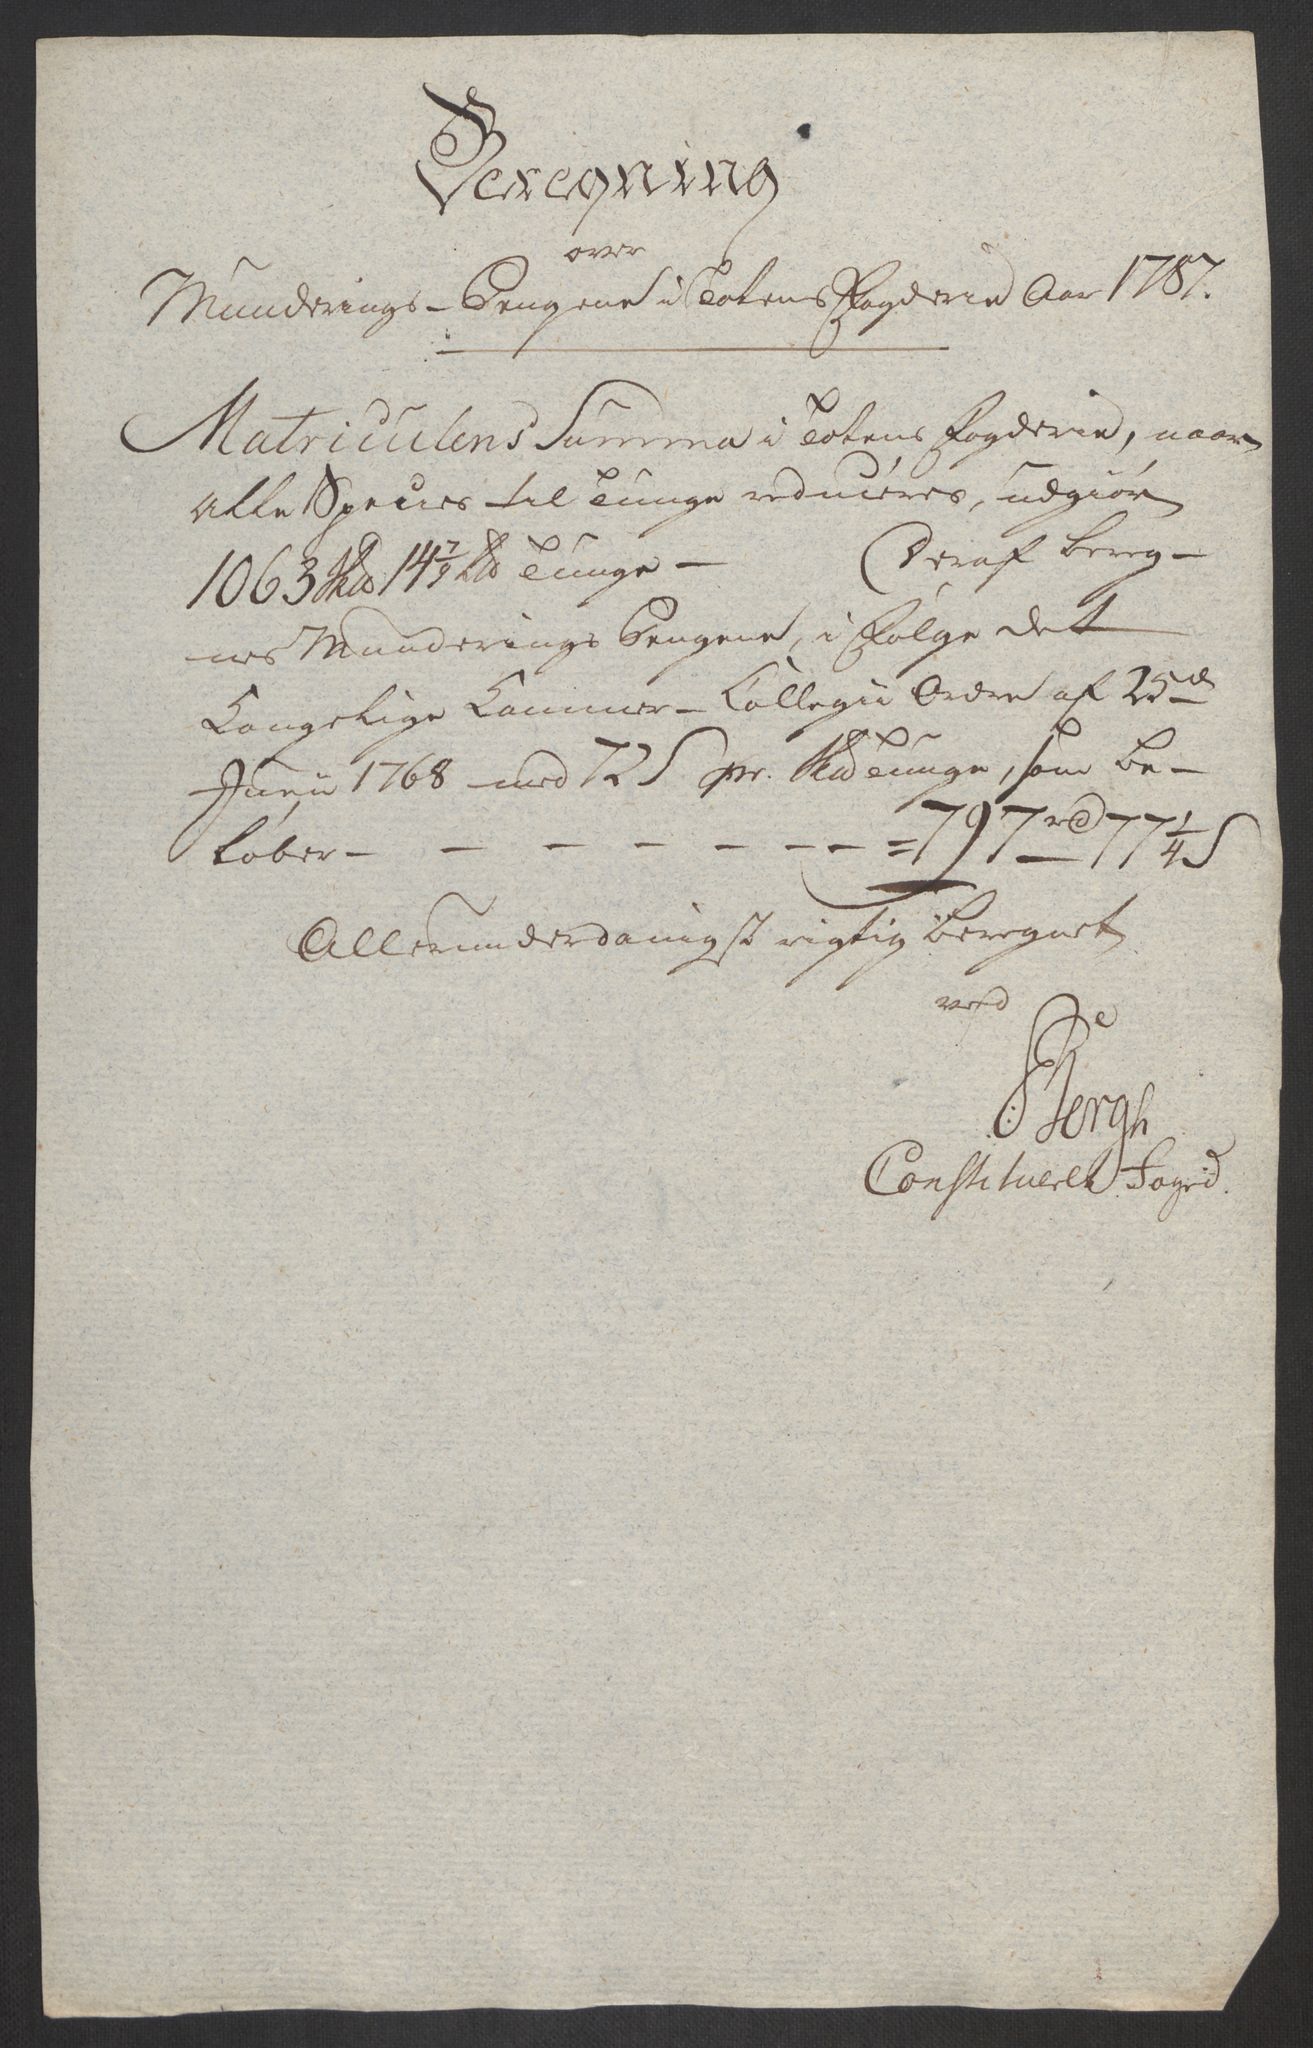 Beregning
over
Munderings-Pengene i Totens Fogderie Aar 1787.
Matriculens Summa i Totens Fogderie, naar
alle Species til Tunge reduceres, udgiør
1063 Skd 14 7/9 Lb Tunge – Deraf bereg-
nes Munderings Pengene, i Følge det
Kongelige Kammer-Collegii Ordre af 25de
Junii 1768 med 72 S pr. Skd Tunge, som be-
løber – – – – – – – = 797 rd 77 1/4 S
Allerunderdanigst rigtig beregnet
ved
Bergh
Constitueret Foged.